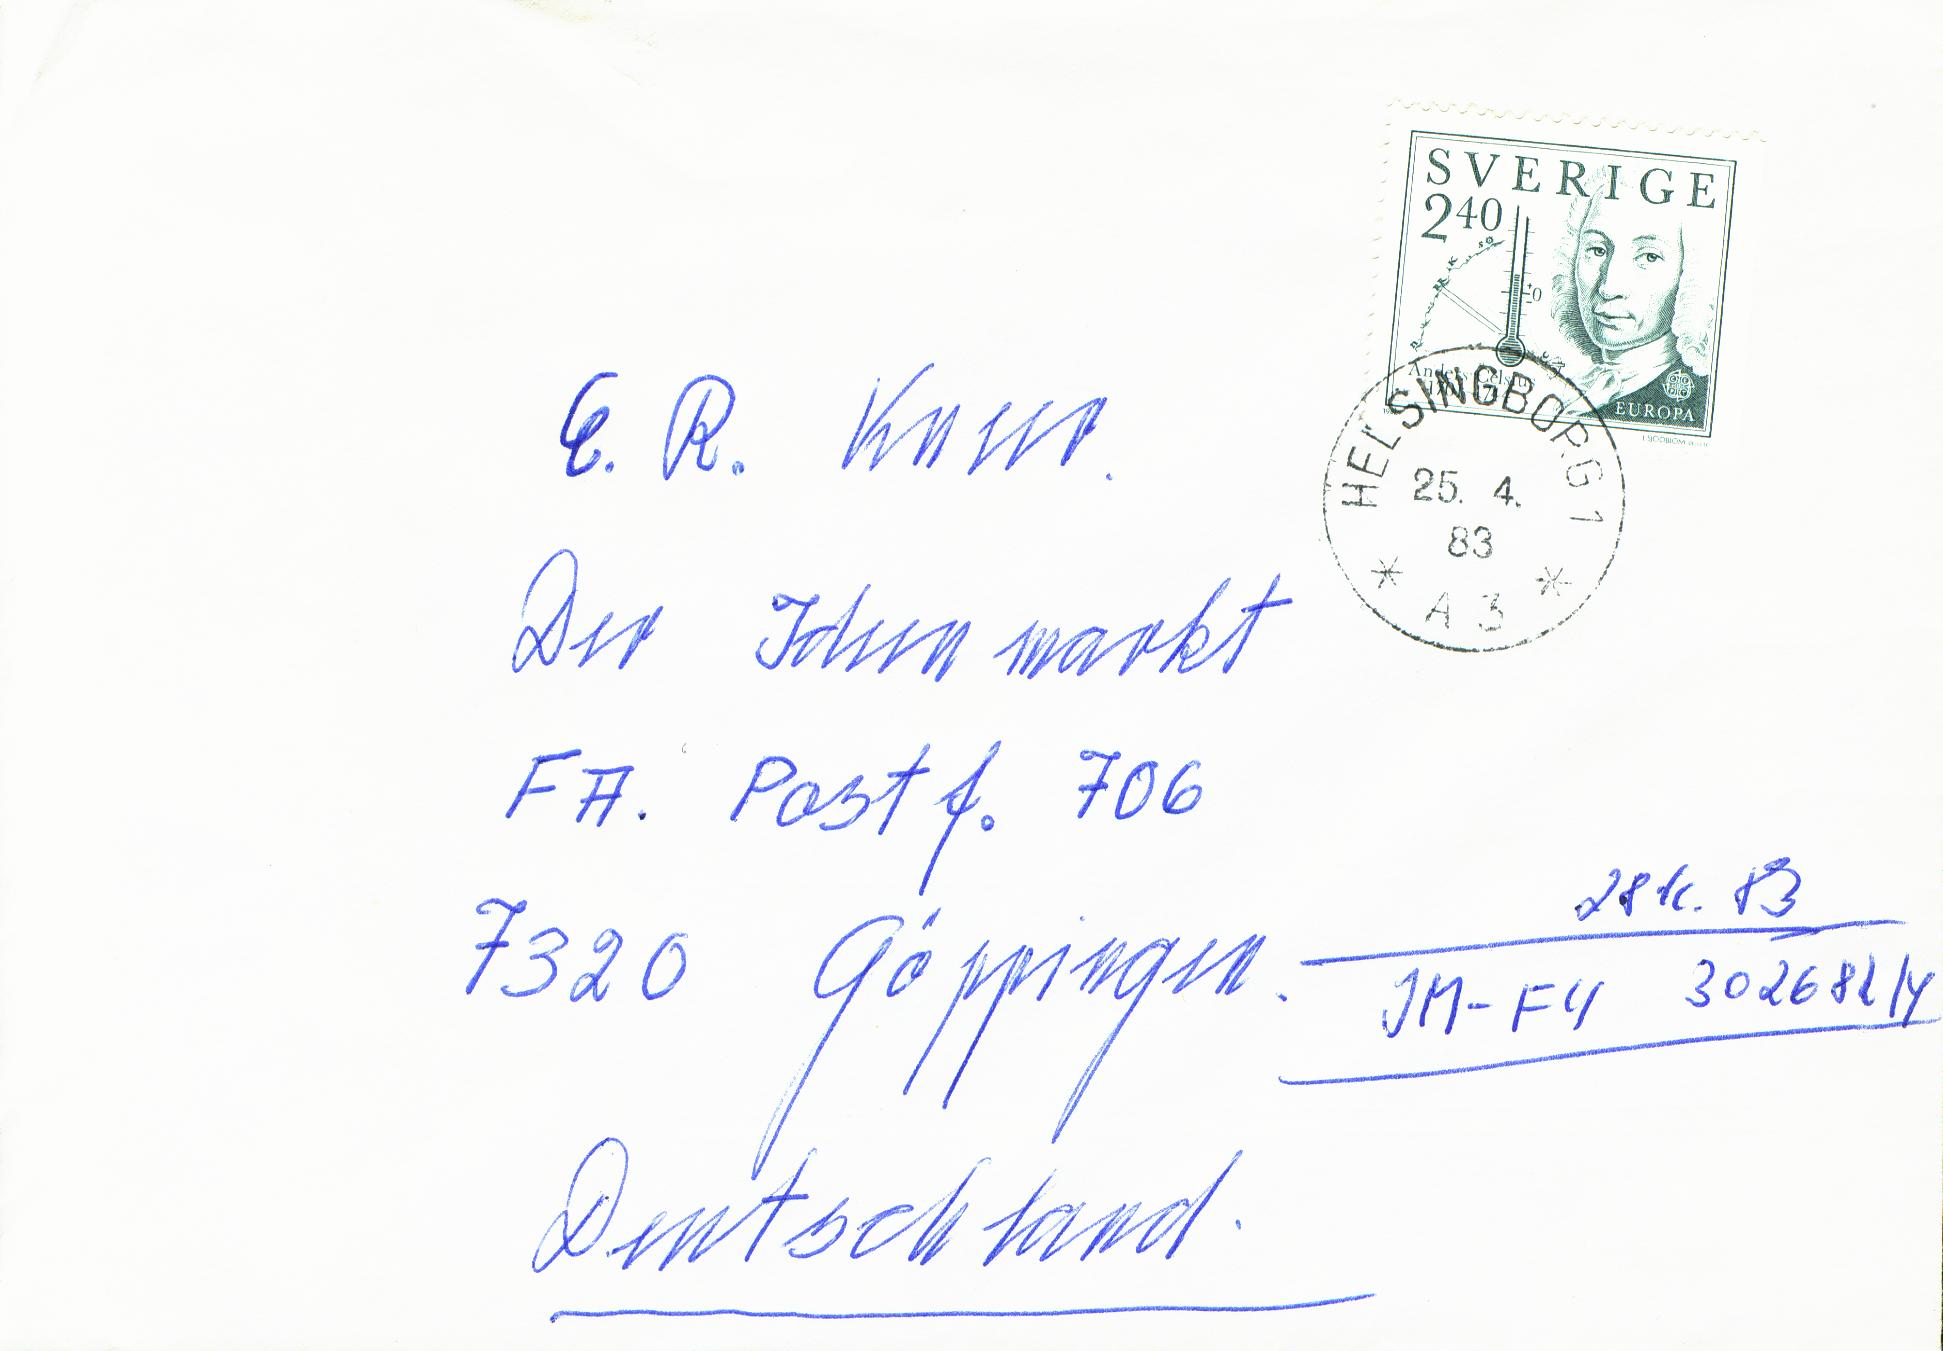 SVERIGE
2 40
0
Anders Celsius
EUROPA
HELSINGBORG 1
25. 4.
83
A 3
E. R. Kneer.
Der Ideen markt
FA. Postf. 706
7320 Göppingen.
Deutschland.
83
JM-F4